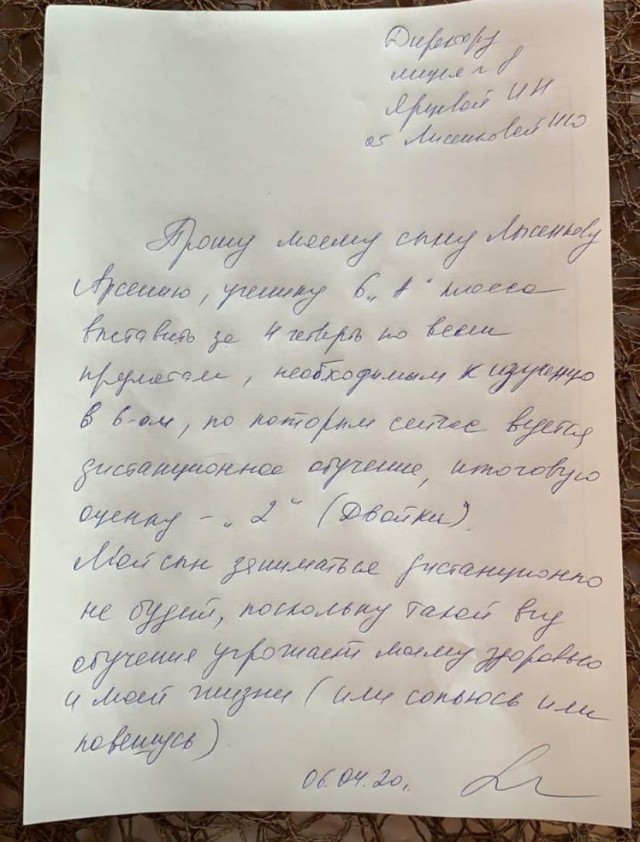 Директору
лицея № 8
Ярцевой ИН
от Лысенковой
Прошу моему сыну Лысенкову
Арсению, ученику 6 „А“ класса
выставить за 4 четверть по всем
предметам, необходимым к изучению
в 6-ом, по которым сейчас ведется
дистанционное обучение, итоговую
оценку - „2“ (Двойки).
Мой сын заниматься дистанционно
не будет, поскольку такой вид
обучения угрожает моему здоровью
и моей жизни (или сопьюсь или
повешусь).
06.04.20г.